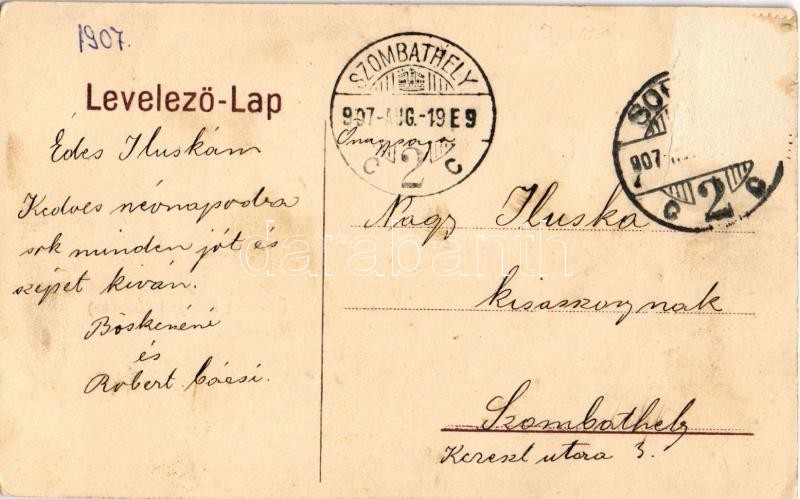 1907.
Levelező-Lap
SZOMBATHELY
907-AUG.-19 E 9
C 2 C
Édes Iluskám
Kedves névnapodra
sok minden jót és
szépet kíván.
Böskenéné
és
Robert bácsi.
Önagysága
Nagy Iluska
kisasszonynak
Szombathely
Kereszt utca 3.
SO
907
C 2 C
darabanth